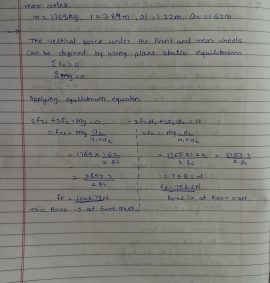 rear axles.
m = 1765kg, l = 2.89m, a1 = 1.22m, a2 = 1.62m
The vertical force under the front and rear wheels
can be defined by using plant static equilibrium
Σ Fz = 0
Σ my = 0
Applying equilibrium equation
2Fz1 + 2Fz2 - mg = 0, -2Fz1a1 + 2Fz2a2 = 0
2Fz1 = mg a2 / a1+a2 2Fz2 = mg a1 / a1+a2
= 1765 × 1.62 / 2.84 = 1765 × 1.22 / 2.84 = 2153.3 / 2.84
= 2859.3 / 2.84 = 758.2N
F2 = 758.2N
Fz = 1006.79N force is at rear axel.
This force is at front axel.